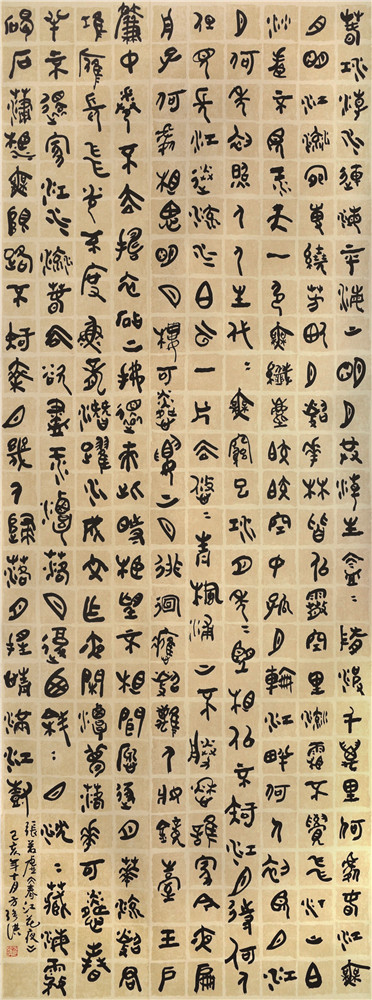 春江潮水連海平海上明月共潮生灩〻隨波千萬里何處春江
無月明江流宛轉繞芳甸月照花林皆似霰空里流霜不覺飛汀上白
沙看不見江天一色無纖塵皎皎空中孤月輪江畔何人初見月江
月何年初照人人生代〻無窮已江月年〻望相似不知江月待何人
但見長江送流水白雲一片去悠〻青楓浦上不勝愁誰家今夜扁
舟子何處相思明月樓可憐樓上月徘徊應照離人妝鏡臺玉戶
簾中卷不去擣衣砧上拂還來此時相望不相聞願逐月華流照君
鴻雁長飛光不度魚龍潛躍水成文昨夜閑潭夢落花可憐春
半不還家江水流春去欲盡江潭落月復西斜〻月沉〻藏海霧
碣石瀟湘無限路不知乘月幾人歸落月搖情滿江樹
張若虛春江花月夜
己亥年十月方